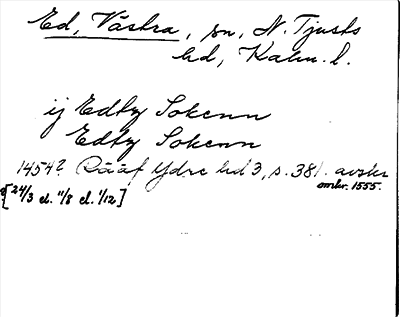 Ed, Västra, sn, N. Tjusts
hd, Kalm. l.
ij Edby Sokenn
Edby Sokenn
1454? Rääf Ydre hd 3, s. 381. avskr.
omkr. 1555.
[24/3 el. 11/8 el. 1/12]